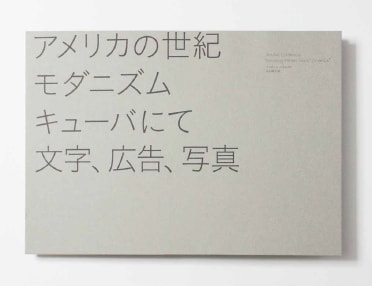 アメリカの世紀
モダニズム
キューバにて
文字、広告、写真